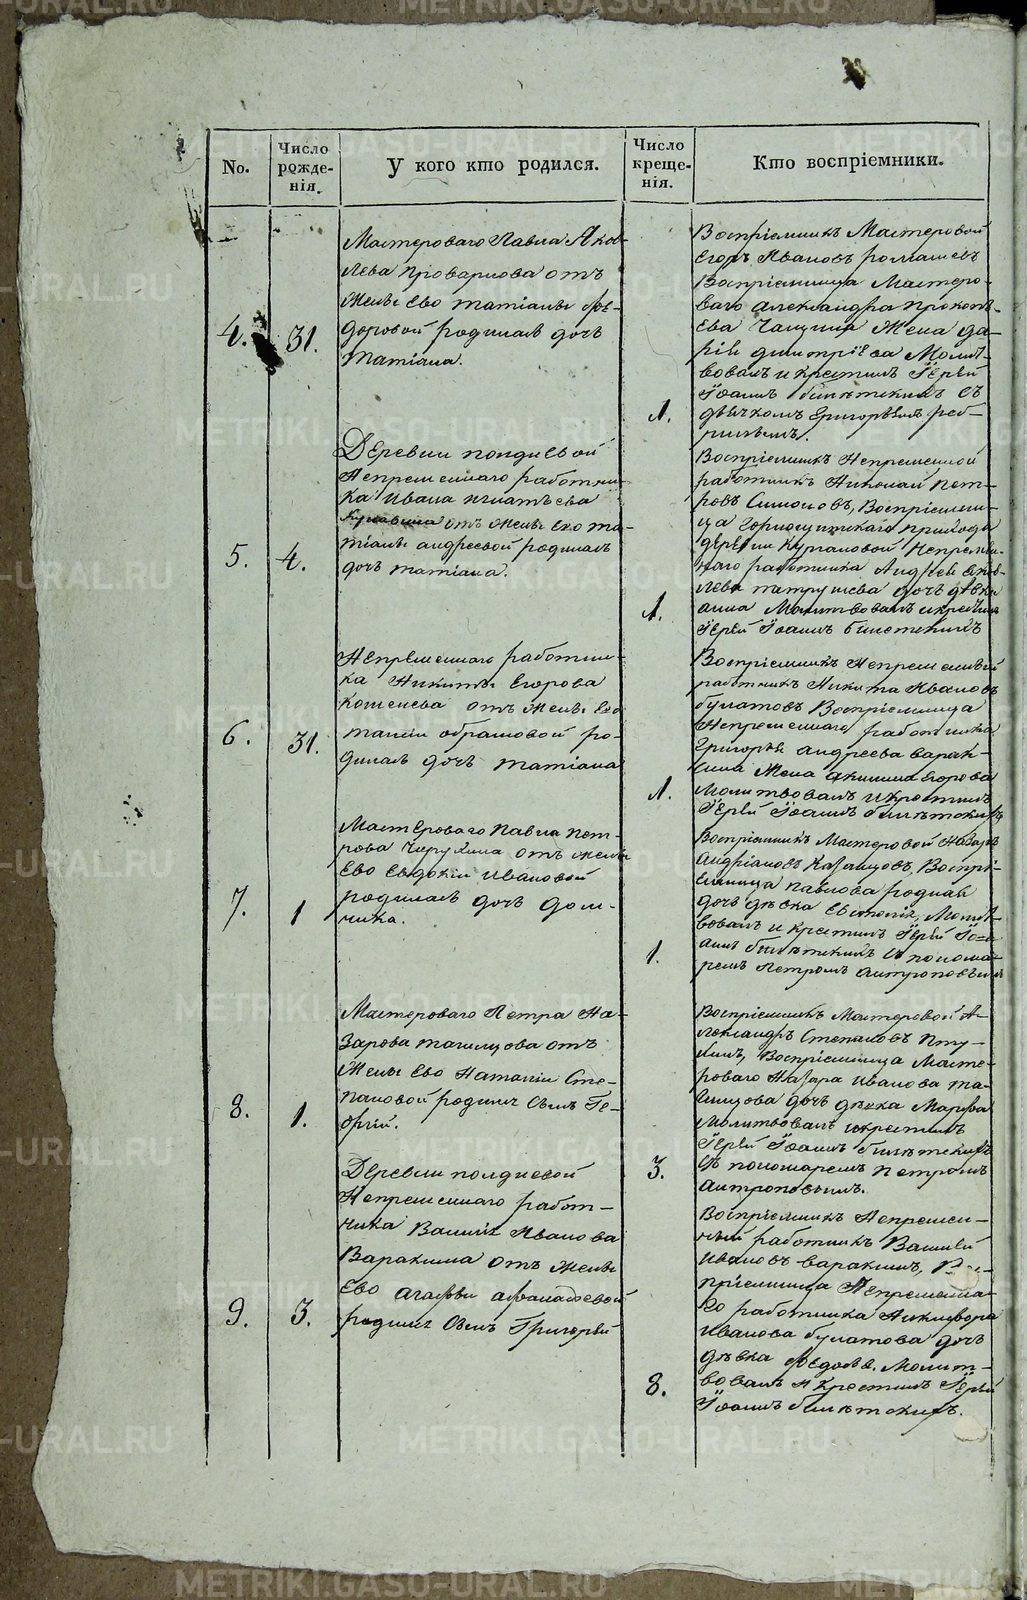 No.
Число рожденія.
У кого кто родился.
Число крещенія.
Кто воспріемники.
4.
31.
Мастероваго Павла Яков-
лева
от
жены ево татіаны Фе-
доровой родилась дочь
татіана.
1.
Воспріемникъ Мастеровой
Егоръ Ивановъ
Воспріемница Мастеро-
ваго александра прокопь-
ева жена да-
рія дмитріева Молит-
вовалъ и крестилъ Іерей
Іоаннъ съ
дьячкомъ
5.
4.
Деревни полдневой
Непременнаго работни-
ка ивана игнатьева
отъ жены ево та-
тіаны андреевой родилась
дочь татіана.
1.
Воспріемникъ Непременной
работникъ Николай пет-
ровъ Симоновъ, Воспріемни-
ца прихода
деревни кургановой Непремен-
наго работника Андрея Яков-
лева дочь девка
анна Молитвовалъ и крестилъ
Іерей Іоаннъ
6.
31.
Непременнаго работни-
ка Никиты Егорова
отъ жены Ево
ро-
дилась дочь татіана
1.
Воспріемникъ Непременный
работникъ Никита Ивановъ
булатовъ Воспріемница
Непременнаго работника
григорья андреева варак-
сина Жена Егорова
Молитвовалъ и крестилъ
Іерей Іоаннъ
7.
1
Мастероваго Павла пет-
рова отъ жены
Ево Евдокіи Ивановой
родилась дочь дом-
ника.
1.
Воспріемникъ Мастеровой Назаръ
Андріановъ Казанцовъ, Воспрі-
емница павлова родная
дочь девка
вовалъ и крестилъ Іерей Іоа-
ннъ с понома-
ремъ Петромъ антроповымъ
8.
1.
Мастероваго Петра На-
зарова отъ
жены Ево Наталіи Сте-
пановой родился сынъ Ге-
оргій.
3.
Воспріемникъ Мастеровой А-
лександръ Степановъ
Воспріемница Масте-
роваго Назара иванова
дочь девка Марфа
Молитвовалъ и крестилъ
Іерей Іоаннъ
съ пономаремъ Петромъ
антроповымъ.
9.
3.
Деревни полдневой
Непременнаго работ-
ника Василья Иванова
Варакина отъ жены
Ево агафьи афанасьевой
родился сынъ Григорей
8.
Воспріемникъ Непремен-
ный работникъ Василей
Ивановъ варакинъ, Вос-
пріемница Непременна-
го работника Никифора
Иванова булатова дочь
девка Молит-
вовалъ и крестилъ Іерей
Іоаннъ
METRIKI.GASO-URAL.RU